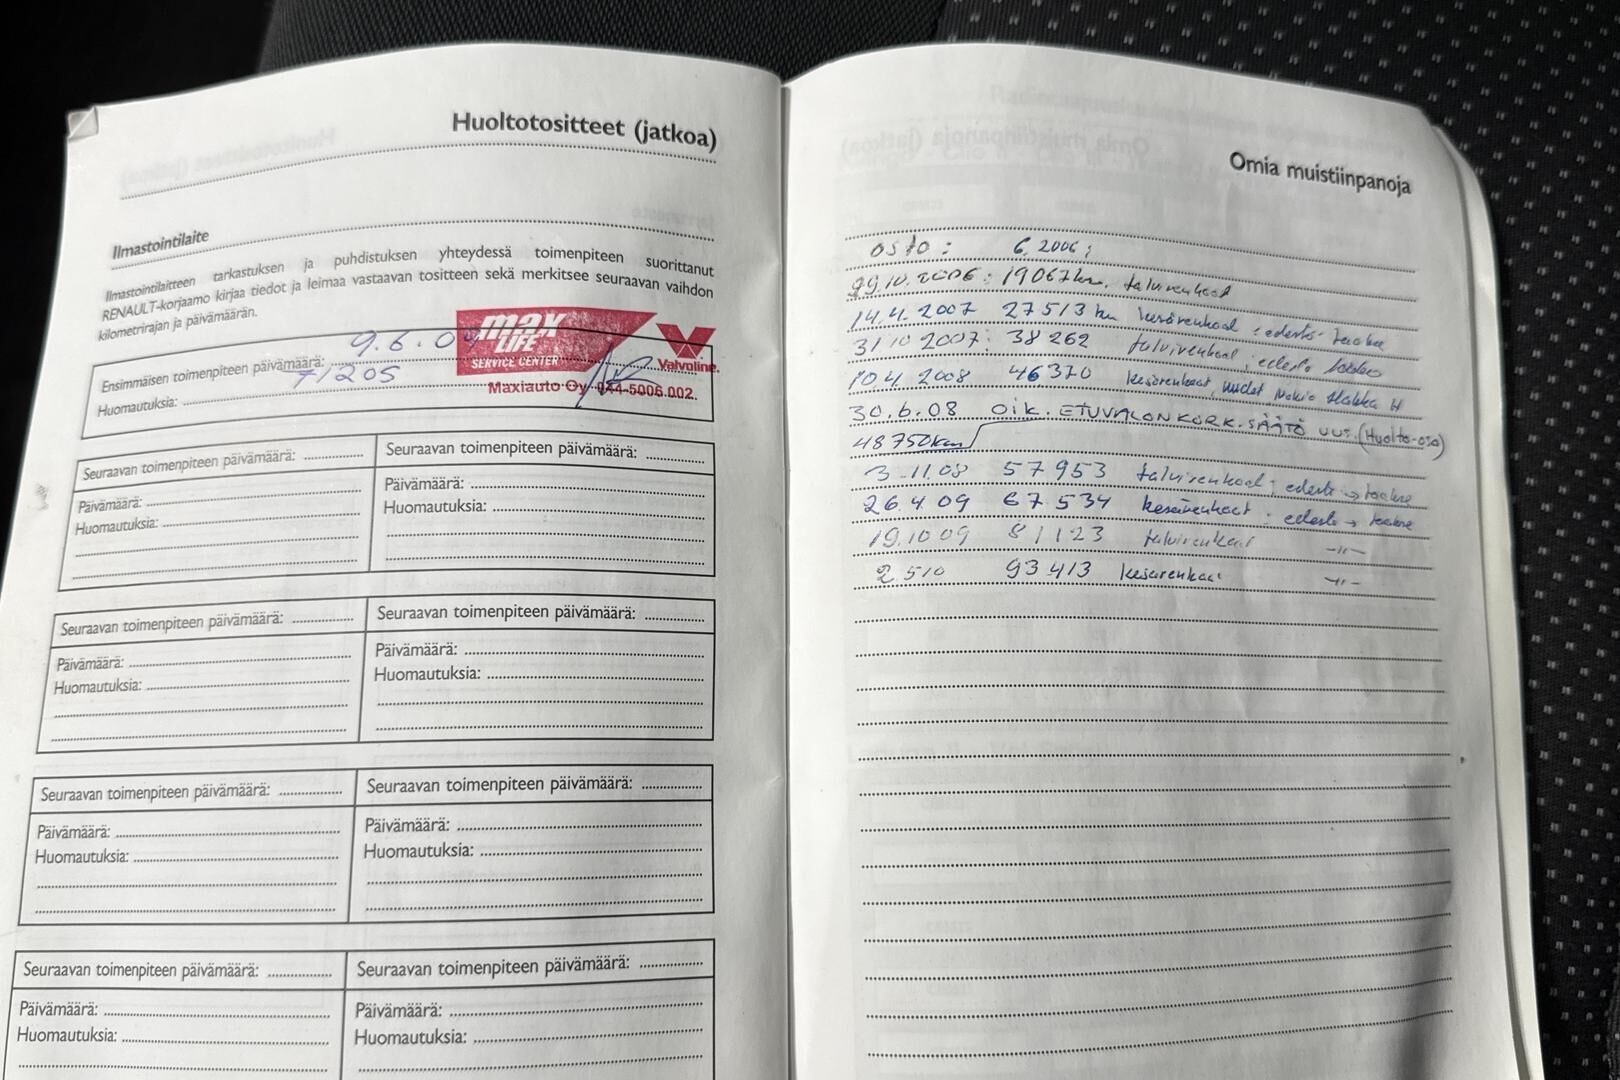 Huoltotositteet (jatkoa)
Ilmastointilaite
Ilmastointilaitteen tarkastuksen ja puhdistuksen yhteydessä toimenpiteen suorittanut
RENAULT-korjaamo kirjaa tiedot ja leimaa vastaavan tositteen sekä merkitsee seuraavan vaihdon
kilometrirajan ja päivämäärän.
Ensimmäisen toimenpiteen päivämäärä: 9.6.09
Huomautuksia: 71205
MAX LIFE
SERVICE CENTER
Valvoline
Maxiauto Oy 044-5006.002.
Seuraavan toimenpiteen päivämäärä:
Päivämäärä:
Huomautuksia:
Seuraavan toimenpiteen päivämäärä:
Päivämäärä:
Huomautuksia:
Seuraavan toimenpiteen päivämäärä:
Päivämäärä:
Huomautuksia:
Seuraavan toimenpiteen päivämäärä:
Päivämäärä:
Huomautuksia:
Seuraavan toimenpiteen päivämäärä:
Päivämäärä:
Huomautuksia:
Seuraavan toimenpiteen päivämäärä:
Päivämäärä:
Huomautuksia:
Seuraavan toimenpiteen päivämäärä:
Päivämäärä:
Huomautuksia:
Seuraavan toimenpiteen päivämäärä:
Päivämäärä:
Huomautuksia:
Omia muistiinpanoja
osto: 6.2006;
10.2006: 19067km. talvirenkaat
14.4.2007 27513 km kesärenkaat: edestä taakse
31 10 2007: 38 262 talvirenkaat: edestä taakse
10.4 2008 46370 kesärenkaat, uudet Nokia Hakka H
30.6.08 OIK. ETUVALON KORK. SÄÄTÖ UUS. (Huolto-osa)
48750km
3.11.08 57953 talvirenkaat; edestä → taakse
26.4.09 67.534 kesärenkaat: edestä → taakse
19.10 09 81123 talvirenkaat -"-
2.5.10 93413 kesärenkaat -"-